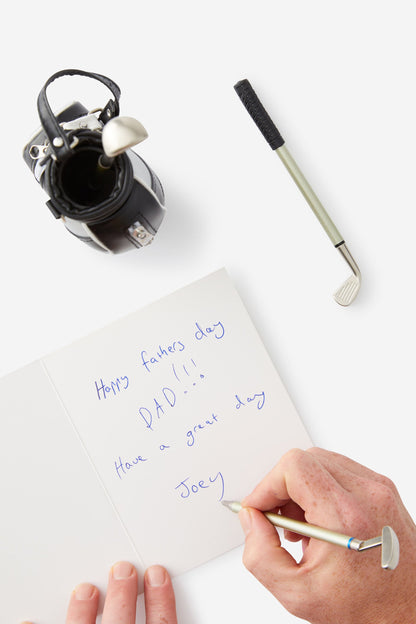 Happy fathers day
DAD!!!...
Have a great day
Joey